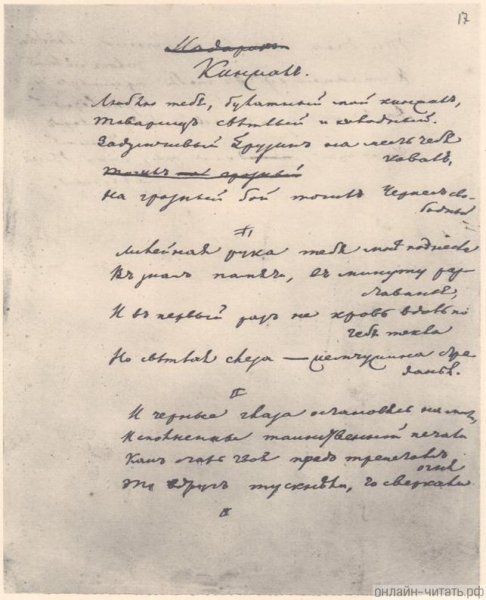 17
Подарок
Кинжалъ.
Люблю тебя, булатный мой кинжалъ,
Товарищъ свѣтлый и холодный.
Задумчивый Грузинъ на месть тебя
ковалъ,
На грозный бой точилъ Черкесъ сво-
бодный
II
Лилейная рука тебя мнѣ поднесла
Въ знакъ памяти, въ минуту раз-
ставанья,
И въ первый разъ не кровь вдоль по
тебѣ текла
Но свѣтлая слеза — жемчужина стра-
данья.
II
И черные глаза остановясь на мнѣ,
Исполнены таинственной печали
Какъ сталь твоя предъ трепетомъ
огнѣ
То вдругъ тускнѣли, то сверкали
III
онлайн-читать.рф